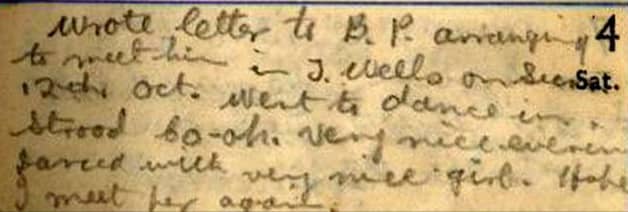 Wrote letter to B. P. arranging 4
to meet him in T. Wells on Sun Sat.
12th Oct. Went to dance in
Strood Co-op. Very nice evenin
Danced with very nice girl. Hope
I meet her again.